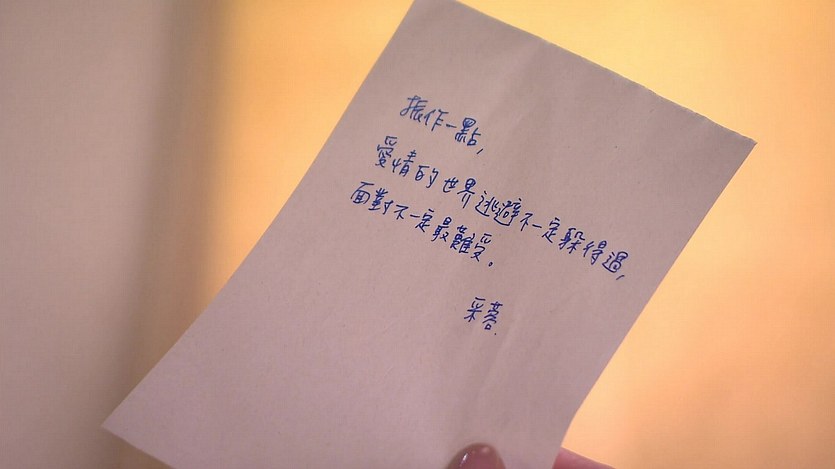 振作一點,
愛情的世界逃避不一定躲得過,
面對不一定最難受。
采蓉.